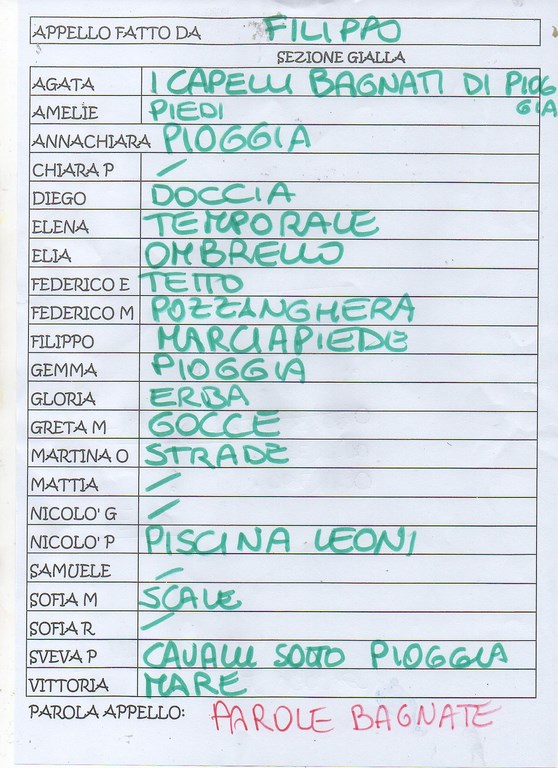 APPELLO FATTO DA FILIPPO
SEZIONE GIALLA
AGATA I CAPELLI BAGNATI DI PIOG
AMELIE PIEDI GIA
ANNACHIARA PIOGGIA
CHIARA P /
DIEGO DOCCIA
ELENA TEMPORALE
ELIA OMBRELLO
FEDERICO E TETTO
FEDERICO M POZZANGHERA
FILIPPO MARCIAPIEDE
GEMMA PIOGGIA
GLORIA ERBA
GRETA M GOCCE
MARTINA O STRADE
MATTIA /
NICOLO' G /
NICOLO' P PISCINA LEONI
SAMUELE /
SOFIA M SCALE
SOFIA R /
SVEVA P CAVALLI SOTTO PIOGGIA
VITTORIA MARE
PAROLA APPELLO: PAROLE BAGNATE